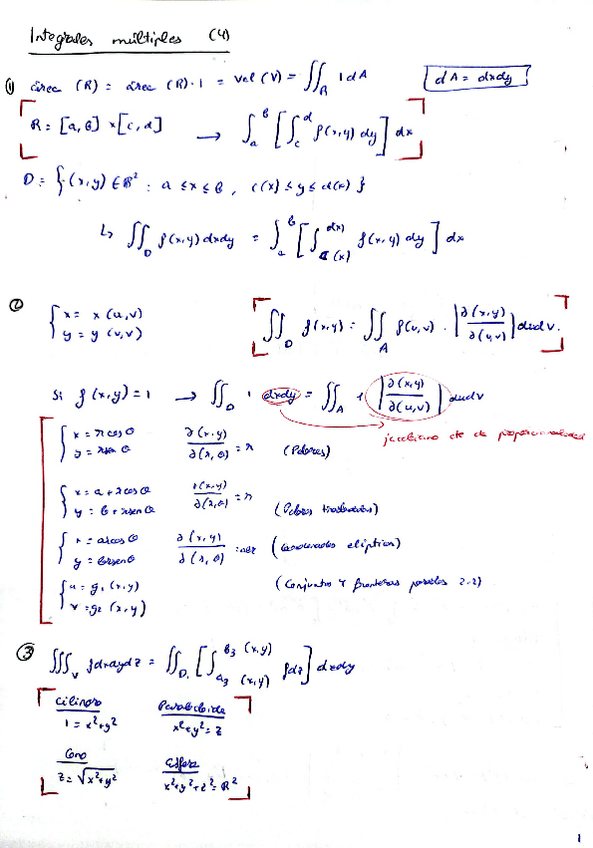 Integrales múltiples (4)
① área (R) = área (R)·1 = vol (V) = ∬_R 1 dA    dA = dxdy
R = [a, b] × [c, d] ⟶ ∫_a^b [∫_c^d f(x,y) dy] dx
D = {(x,y) ∈ ℝ² : a ≤ x ≤ b, c(x) ≤ y ≤ d(x)}
↳ ∬_D f(x,y) dxdy = ∫_a^b [∫_{c(x)}^{d(x)} f(x,y) dy] dx
② { x = x (u,v)
y = y (u,v)
∬_D f(x,y) = ∬_A f(u,v) · |∂(x,y)/∂(u,v)| dudv.
Si f(x,y) = 1 ⟶ ∬_D 1 dxdy = ∬_A 1 |∂(x,y)/∂(u,v)| dudv
jacobiano cte de proporcionalidad
{ x = r cos θ
y = r sen θ
∂(x,y)/∂(r,θ) = r (Polares)
{ x = a + r cos θ
y = b + r sen θ
∂(x,y)/∂(r,θ) = r (Polares trasladadas)
{ x = a r cos θ
y = b r sen θ
∂(x,y)/∂(r,θ) = abr (Coordenadas elípticas)
{ u = g₁ (x,y)
v = g₂ (x,y)
(Conjuntos y fronteras paralelas 2-2)
③ ∭_V f dxdydz = ∬_D [∫_{a₃ (x,y)}^{b₃ (x,y)} f dz] dxdy
Cilindro    Paraboloide
1 = x² + y²    x² + y² = z
Cono    Esfera
z = √(x² + y²)    x² + y² + z² = R²
1